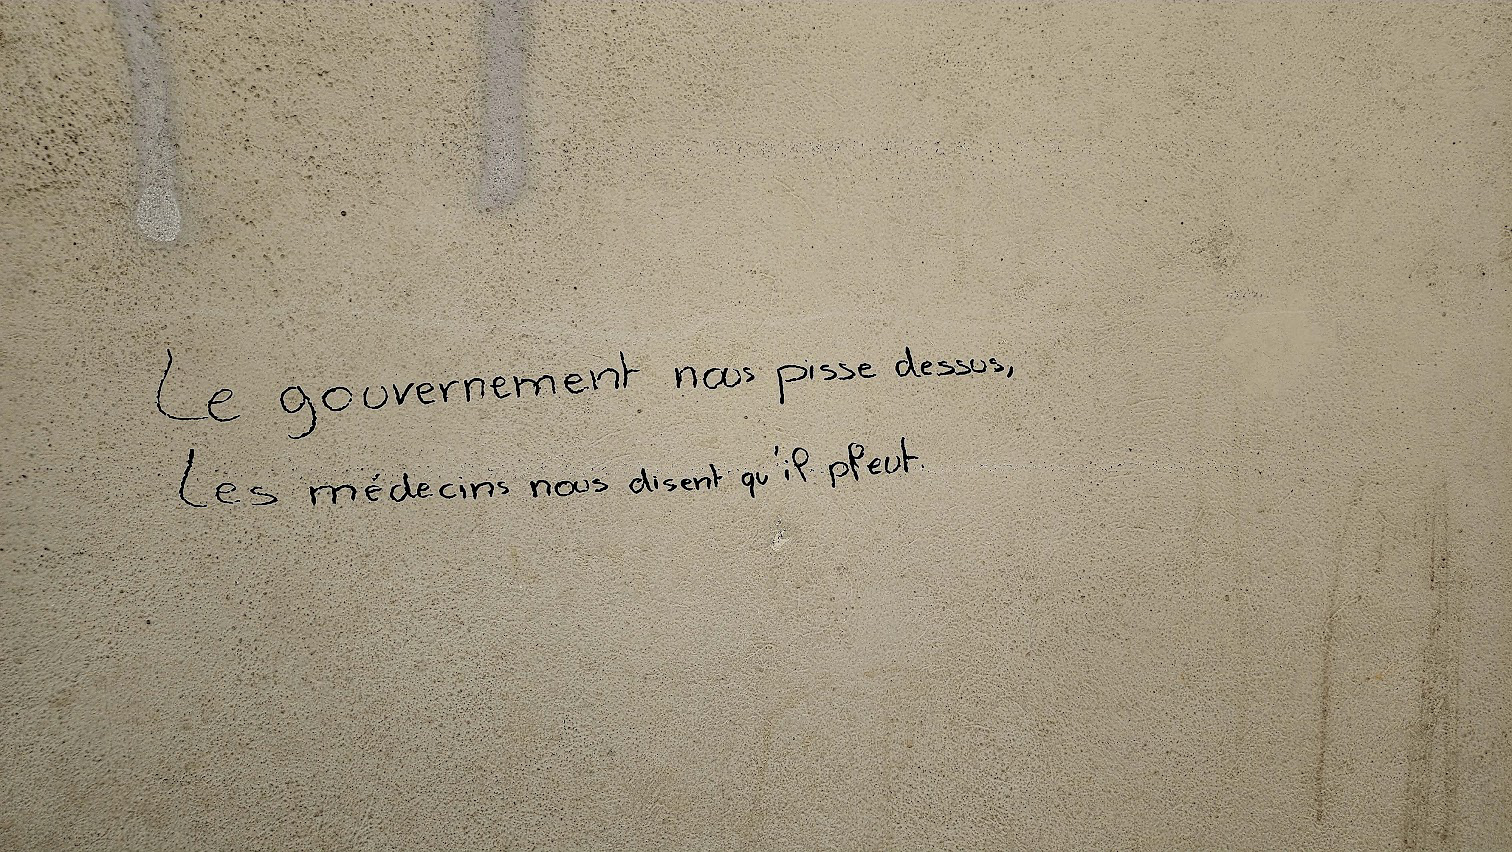 Le gouvernement nous pisse dessus,
Les médecins nous disent qu'il pleut.